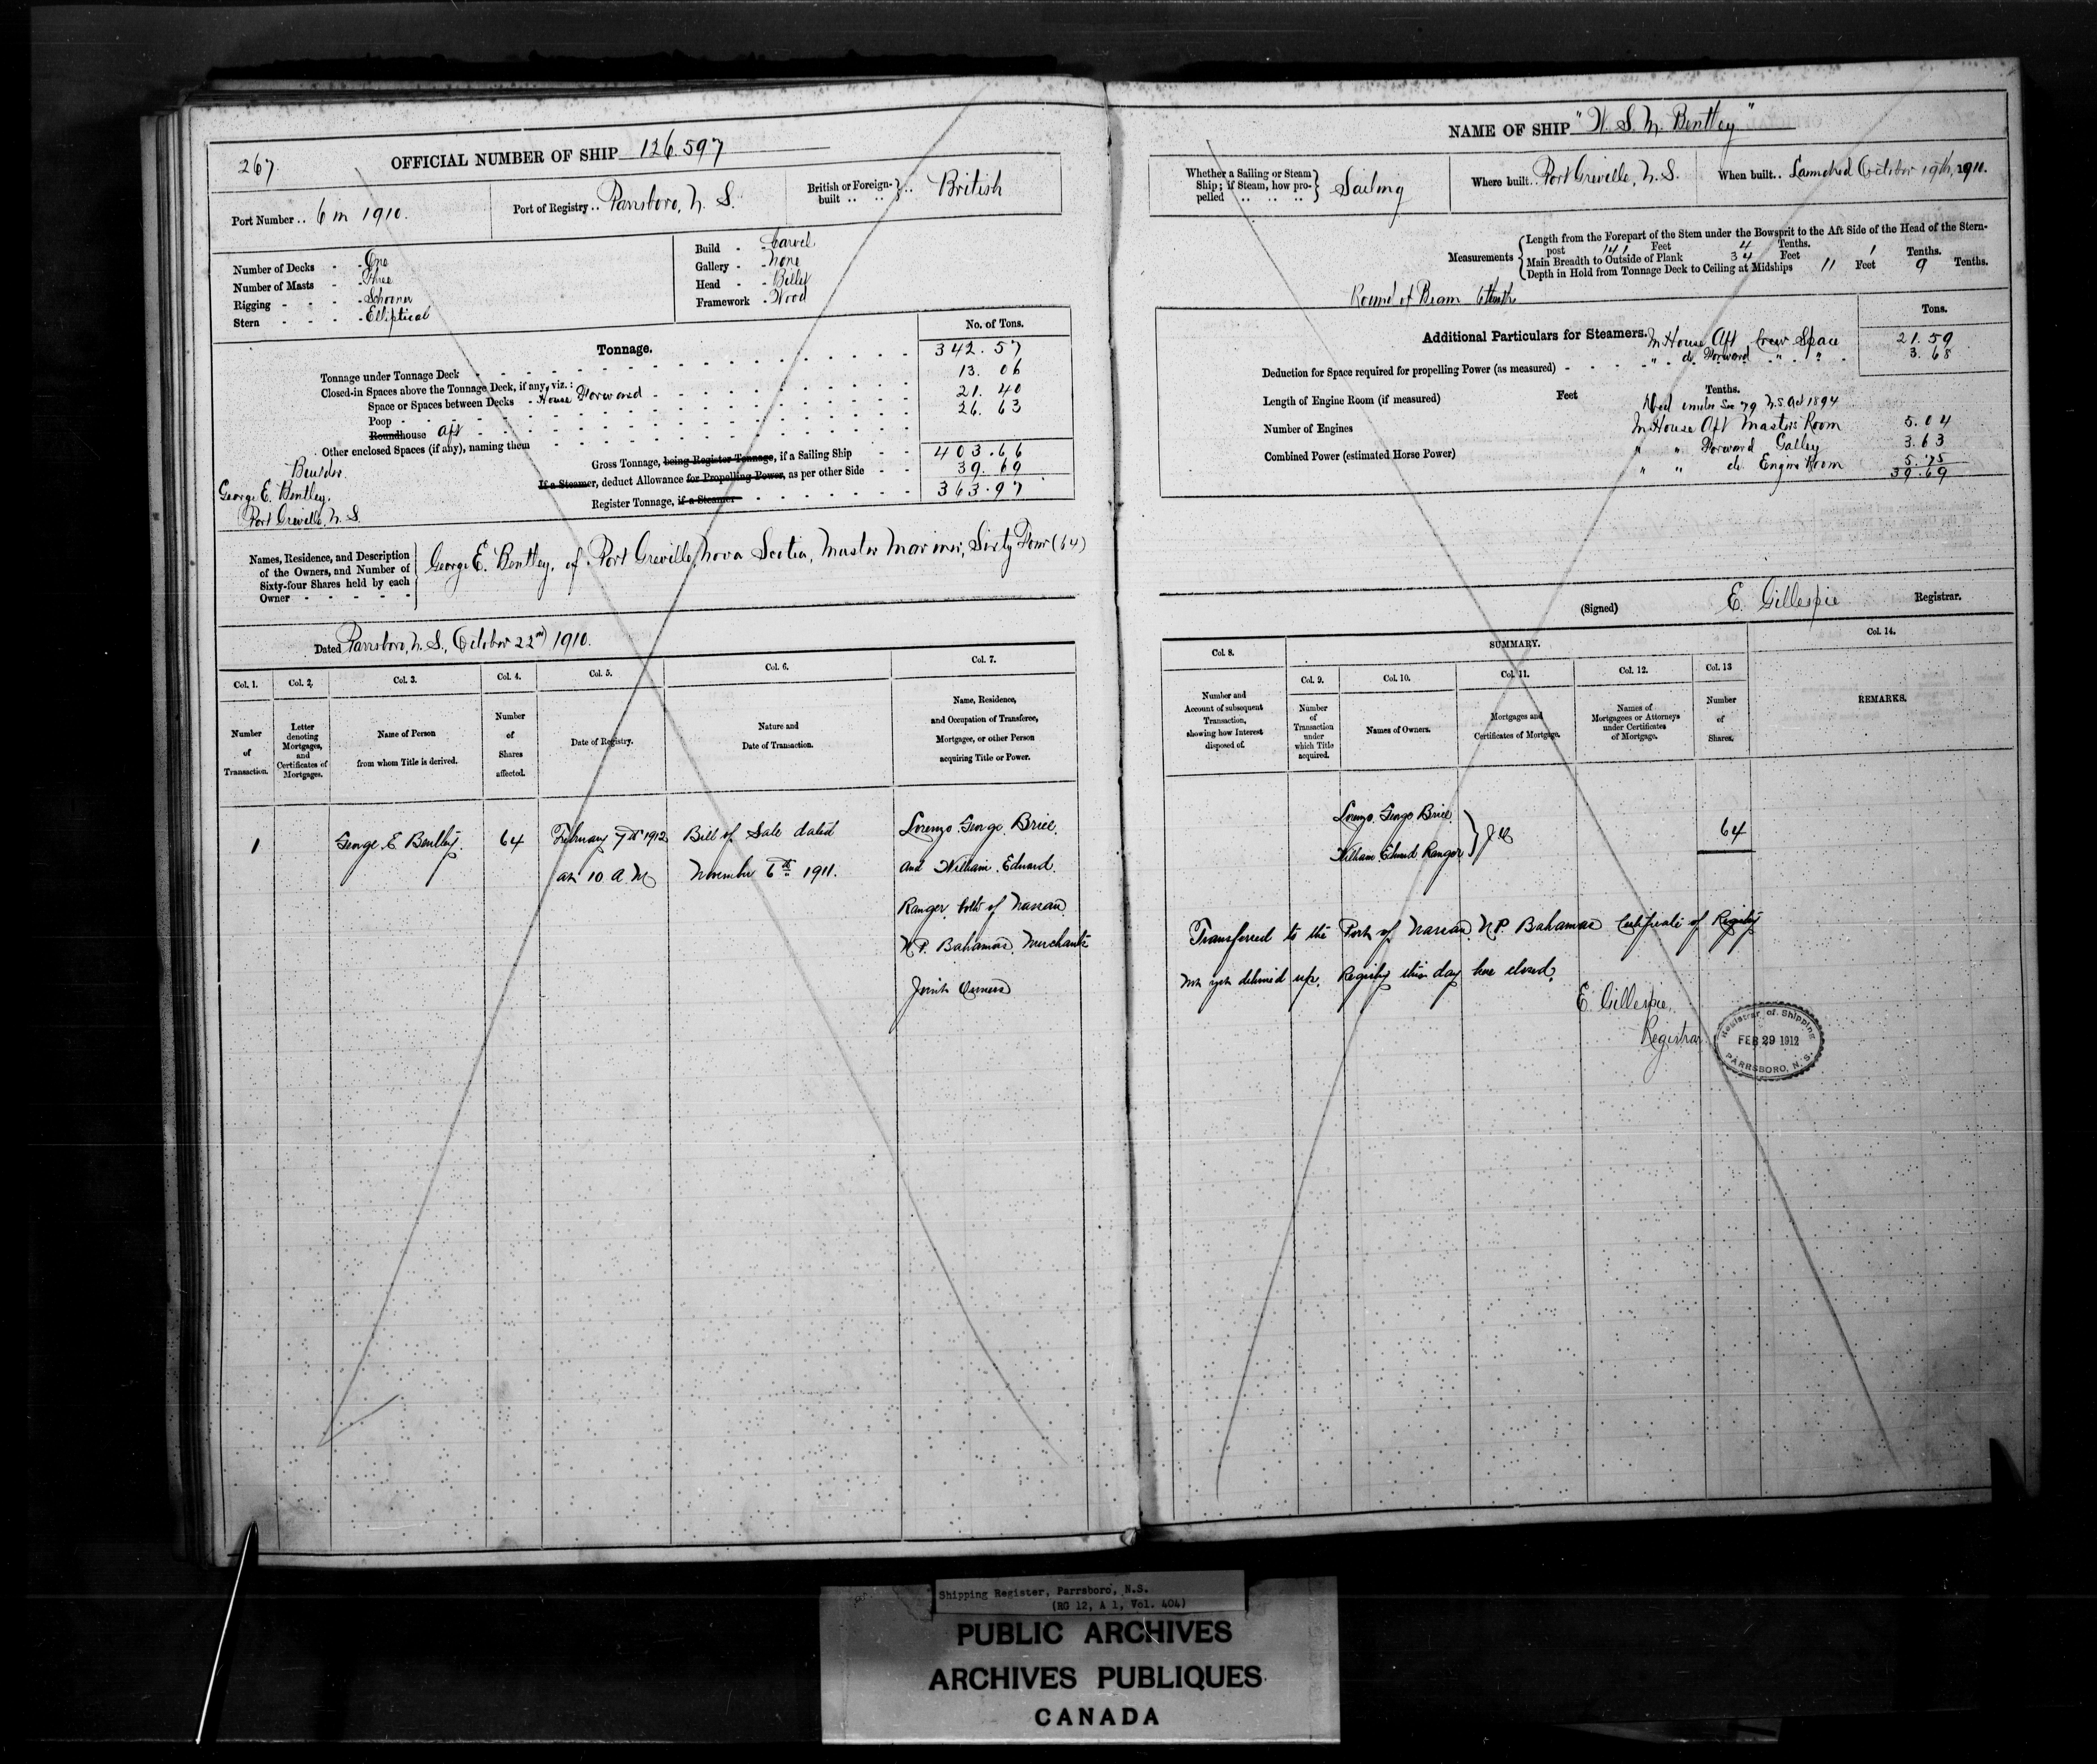 267.
OFFICIAL NUMBER OF SHIP 126.597
Port Number .. 6 in 1910.
Port of Registry .. Parrsboro, N. S.
British or Foreign-built .. British
Number of Decks - - One
Number of Masts - - Three
Rigging - - - - Schooner
Stern - - - - Elliptical
Build - - Carvel
Gallery - - None
Head - - Billet
Framework - Wood
No. of Tons.
Tonnage.
Tonnage under Tonnage Deck 342.57
Closed-in Spaces above the Tonnage Deck, if any, viz.: 13.06
Space or Spaces between Decks - House Forward 21.40
Poop 26.63
Roundhouse Aft
Other enclosed Spaces (if any), naming them
Gross Tonnage, being Register Tonnage, if a Sailing Ship 403.66
If a Steamer, deduct Allowance for Propelling Power, as per other Side 39.69
Register Tonnage, if a Steamer 363.97
Builder.
George E. Bentley.
Port Greville, N. S.
Names, Residence, and Description of the Owners, and Number of Sixty-four Shares held by each Owner
George E. Bentley, of Port Greville, Nova Scotia, Master Mariner, Sixty Four (64)
Dated Parrsboro, N. S., October 22nd 1910.
Col. 1. Col. 2. Col. 3. Col. 4. Col. 5. Col. 6. Col. 7.
Number of Transaction.
Letter denoting Mortgages, and Certificates of Mortgages.
Name of Person from whom Title is derived.
Number of Shares affected.
Date of Registry.
Nature and Date of Transaction.
Name, Residence, and Occupation of Transferee, Mortgagee, or other Person acquiring Title or Power.
1 George E Bentley. 64 February 7th 1912 Bill of Sale dated Lorenzo George Brice
at 10 A.M November 6th 1911. and William Edward
Ranger both of Nassau
N.P. Bahamas Merchants
Joint Owners
NAME OF SHIP "W. S. M. Bentley"
Whether a Sailing or Steam Ship; if Steam, how propelled .. Sailing
Where built .. Port Greville, N. S.
When built .. Launched October 19th, 1910.
Measurements
Length from the Forepart of the Stem under the Bowsprit to the Aft Side of the Head of the Stern-
post 141 Feet 4 Tenths.
Main Breadth to Outside of Plank 34 Feet 1 Tenths.
Depth in Hold from Tonnage Deck to Ceiling at Midships 11 Feet 9 Tenths.
Round of Beam 6 tenths
Tons.
Additional Particulars for Steamers. In House Aft Crew Space 21.59
" do Forward " " 3.68
Deduction for Space required for propelling Power (as measured)
Length of Engine Room (if measured) Feet Tenths.
Ded under Sec 79 M.S. Act 1894
Number of Engines
In House Aft Masters Room 5.04
Combined Power (estimated Horse Power)
" " Forward Galley 3.63
" " do Engine Room 5.75
39.69
(Signed) E. Gillespie Registrar.
SUMMARY.
Col. 8. Col. 9. Col. 10. Col. 11. Col. 12. Col. 13 Col. 14.
Number and Account of subsequent Transaction, showing how Interest disposed of.
Number of Transaction under which Title acquired.
Names of Owners.
Mortgages and Certificates of Mortgage.
Names of Mortgagees or Attorneys under Certificates of Mortgage.
Number of Shares.
REMARKS.
Lorenzo George Brice
William Edward Ranger } J O 64
Transferred to the Port of Nassau, N.P. Bahamas Certificate of Registry
Not yet delivered up. Registry this day here closed.
E. Gillespie,
Registrar
Registrar of Shipping
FEB 29 1912
PARRSBORO, N. S.
Shipping Register, Parrsboro, N.S.
(RG 12, A 1, Vol. 404)
PUBLIC ARCHIVES
ARCHIVES PUBLIQUES
CANADA